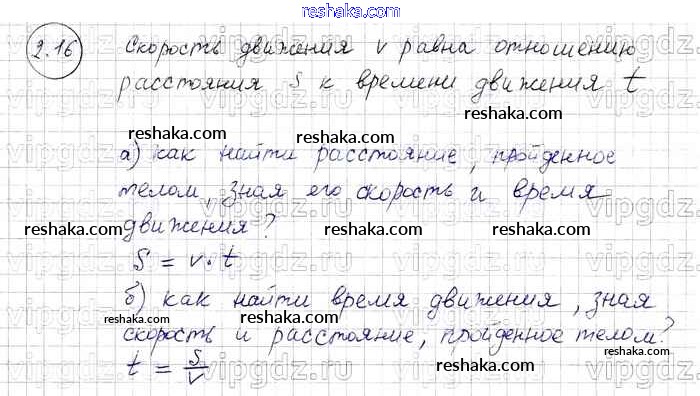 reshaka.com
2.16 Скорость движения v равна отношению
расстояния S к времени движения t
reshaka.com reshaka.com reshaka.com
а) как найти расстояние, пройденное
телом, зная его скорость и время
reshaka.com reshaka.com reshaka.com
движения?
reshaka.com reshaka.com reshaka.com
S = v · t
б) как найти время движения, зная
reshaka.com reshaka.com reshaka.com
скорость и расстояние, пройденное телом?
reshaka.com reshaka.com
t = S/V
reshaka.com